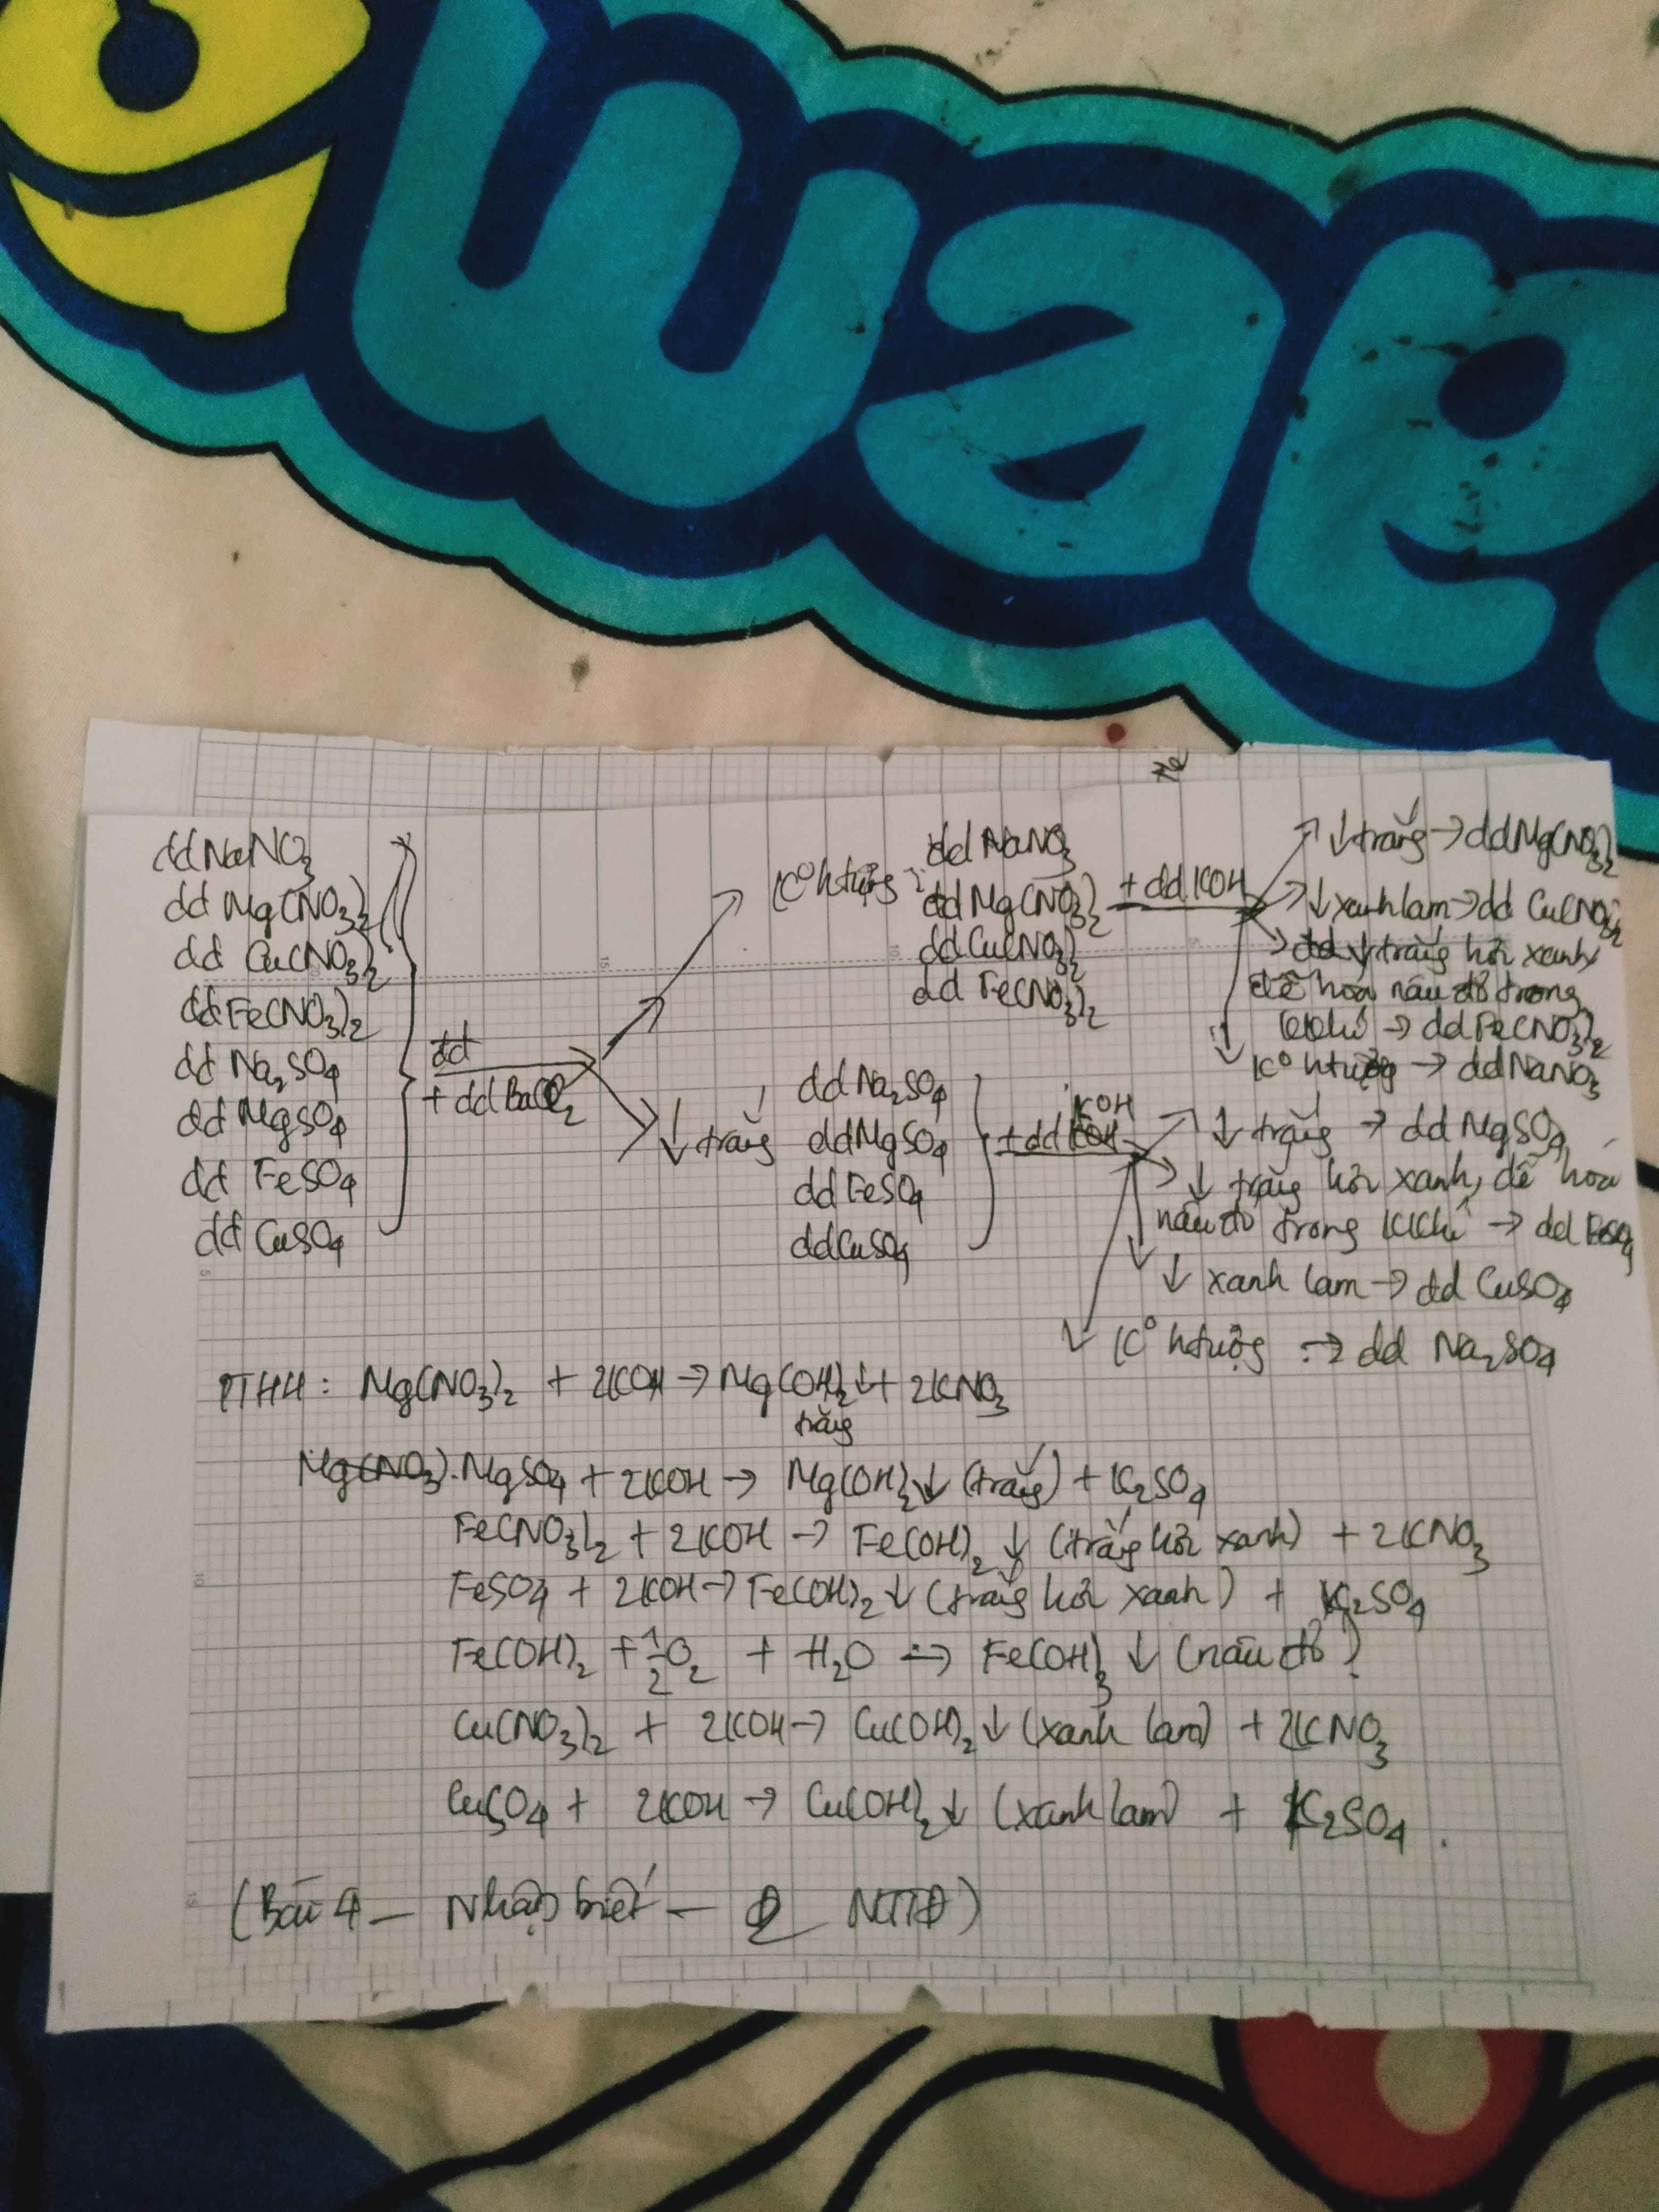 wap
dd NaNO3
dd Mg(NO3)2
dd Cu(NO3)2
dd Fe(NO3)2
dd Na2SO4
dd MgSO4
dd FeSO4
dd CuSO4
dd
+ dd BaCl2
K° htượng
dd NaNO3
dd Mg(NO3)2
dd Cu(NO3)2
dd Fe(NO3)2
+ dd KOH
↓ trắng → dd Mg(NO3)2
↓ xanh lam → dd Cu(NO3)2
dd ↓ trắng hơi xanh
dễ hoá nâu đỏ trong
KKhí → dd Fe(NO3)2
K° htượng → dd NaNO3
↓ trắng
dd Na2SO4
dd MgSO4
dd FeSO4
dd CuSO4
KOH
+ dd KOH
↓ trắng → dd MgSO4
↓ trắng hơi xanh, dễ hoá
nâu đỏ trong KKhí → dd FeSO4
↓ xanh lam → dd CuSO4
K° htượng → dd Na2SO4
PTHH: Mg(NO3)2 + 2KOH → Mg(OH)2 ↓ + 2KNO3
trắng
Mg(NO3) MgSO4 + 2KOH → Mg(OH)2 ↓ (trắng) + K2SO4
Fe(NO3)2 + 2KOH → Fe(OH)2 ↓ (trắng hơi xanh) + 2KNO3
FeSO4 + 2KOH → Fe(OH)2 ↓ (trắng hơi xanh) + K2SO4
Fe(OH)2 + 1/2 O2 + H2O → Fe(OH)3 ↓ (nâu đỏ)
Cu(NO3)2 + 2KOH → Cu(OH)2 ↓ (xanh lam) + 2KNO3
CuSO4 + 2KOH → Cu(OH)2 ↓ (xanh lam) + K2SO4.
(Bài 4 – Nhận biết –